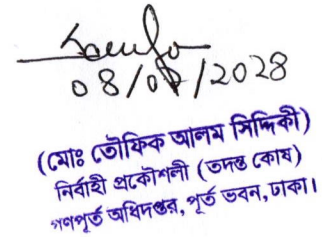 08/0৭/2028
(মোঃ তৌফিক আলম সিদ্দিকী)
নির্বাহী প্রকৌশলী (তদন্ত কোষ)
গণপূর্ত অধিদপ্তর, পূর্ত ভবন, ঢাকা।